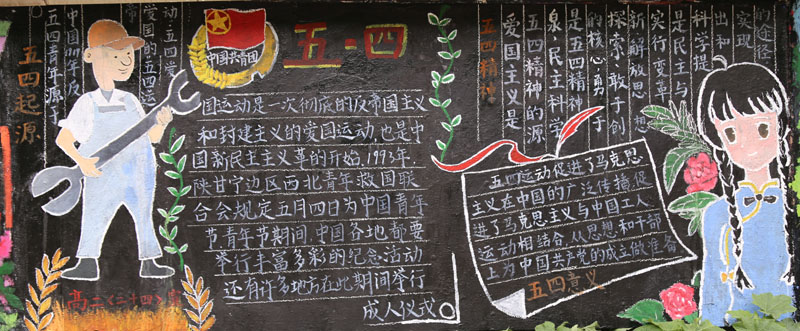 五四起源
五四青年源于
爱国的五四运
动五四学
中国共青团
五·四
国运动是一次彻底的反帝国主义
和封建主义的爱国运动,也是中
国新民主主义革的开始,1993年.
陕甘宁边区西北青年救国联
合会规定五月四日为中国青年
节青年节期间,中国各地都要
举行丰富多彩的纪念活动
还有许多地方在此期间举行
成人仪式
五四精神
爱国主义是
五四精神的源
泉民主科学
是五四精神
的核心勇于
探索敢于创
新解放思想
实行变革
是民主与
科学提
出和
实现
的途径
五四运动促进了马克思
主义在中国的广泛传播,促
进了马克思主义与中国工人
运动相结合,从思想和干部
上为中国共产党的成立做准备
五四意义